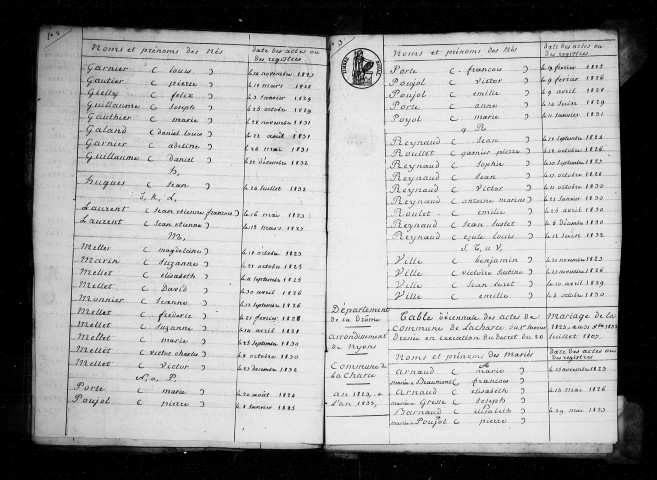 fo 2
Noms et prénoms des Nés
date des actes ou des registres
Garnier ( louis )
Gautier ( pierre )
Gielly ( felix )
Guillaume ( Joseph )
Gauthier ( marie )
Galand ( daniel louis )
Garnier ( adeline )
Guillaume ( daniel )
le 10 novembre 1823
le 11 mars 1828
le 3 janvier 1829
le 25 octobre 1829
le 28 novembre 1831
le 22 août 1831
le 26 mai 1831
le 22 décembre 1832
h,
hugues ( Jean )
le 20 Juillet 1832
J, K, L,
Laurent ( Jean etienne françois )
le 16 mai 1823
Laurent ( Jean etienne )
le 15 mars 1827
M,
Mellet ( magdeleine )
le 18 octobre 1823
Marin ( Suzanne )
le 21 octobre 1825
Mellet ( elisabeth )
septembre 1825
Mellet ( David )
le 30 avril 1826
Monnier ( Jeanne )
septembre 1826
Mellet ( frederic )
le 21 février 1828
Mellet ( Suzanne )
avril 1828
Mellet ( marie )
le 25 septembre 1830
Mellet ( victor charles )
le 8 octobre 1830
Mellet ( Victor )
le 23 décembre 1832
N, o, P,
Porte ( marie )
le 20 août 1824
Poujol ( pierre )
janvier 1825
3
Noms et prénoms des Nés
date des actes ou des registres
Porte ( françois )
février 1825
Poujol ( victor )
le 9 février 1826
Poujol ( emilie )
le 9 avril 1828
Porte ( anne )
le 10 Juin 1829
Poyol ( marie )
le 11 janvier 1831
q R,
Reynaud ( Jean )
septembre 1824
Roullet ( garnier pierre )
octobre 1826
Reynaud ( Sophie )
septembre 1823
Reynaud ( Jean )
octobre 1826
Reynaud ( Victor )
octobre 1830
Reynaud ( antoine marius )
janvier 1830
Roulet ( emilie )
avril 1830
Reynaud ( Jean )
décembre 1830
Reynaud ( louis )
Juin 1832
S, T, u V,
Ville ( benjamin )
novembre 1823
Ville ( victoire )
novembre 1826
Ville ( Jean )
le 10 avril 1829
Ville ( emilie )
le 6 octobre 1830
Département de la Drôme
arrondissement de Nyons
Commune de La Charce
an 1823, à l'an 1833,
Table décennale des actes de Mariage de la
commune de Lacharce du 1er janvier 1823, au 31 Xbre 1832
dressée en exécution du décret du 20 Juillet 1807,
Noms et prénoms des Mariés
date des actes ou des registres
A
arnaud ( marie )
marié a Beaumont ( françois )
novembre 1823
Arnaud ( elisabeth )
Gresse ( Joseph )
le 13 mai 1826
Barnaud ( elisabeth )
Poujol ( pierre )
le 29 mai 1823